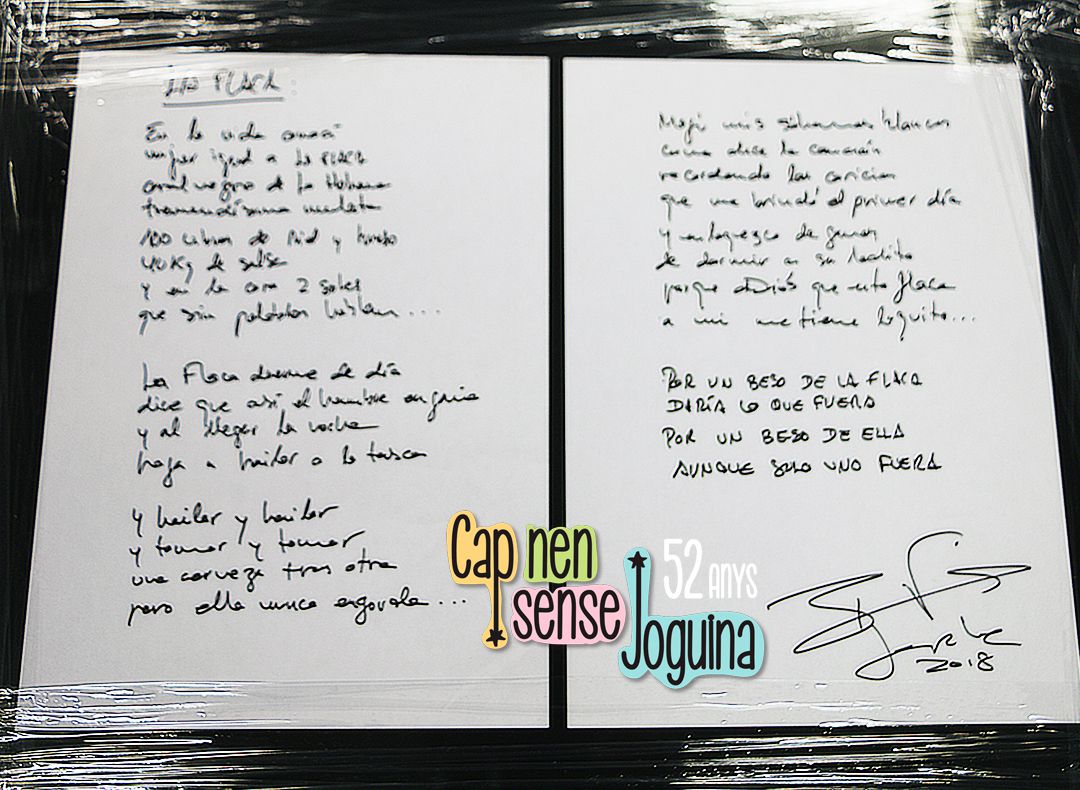 LA FLACA:
En la vida conocí
mujer igual a la FLACA
coral negro de La Habana
tremendísima mulata
100 Libras de Piel y hueso
40 Kg de salsa
y en la cara 2 soles
que sin palabras hablan...
La Flaca duerme de día
dice que así el hambre engaña
y al llegar la noche
baja a bailar a la tasca
y bailar y bailar
y tomar y tomar
una cerveza tras otra
pero ella nunca engorda...
Mojé mis sábanas blancas
como dice la canción
recordando las caricias
que me brindó el primer día
y enloquezco de ganas
de dormir a su ladito
porque Diós que esta flaca
a mi me tiene loquito...
POR UN BESO DE LA FLACA
DARÍA LO QUE FUERA
POR UN BESO DE ELLA
AUNQUE SOLO UNO FUERA
2018
Cap nen
sense
Joguina
52 ANYS